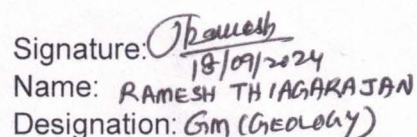 Signature: Ramesh
18/09/2024
Name: RAMESH THIAGARAJAN
Designation: Gm (GEOLOGY)